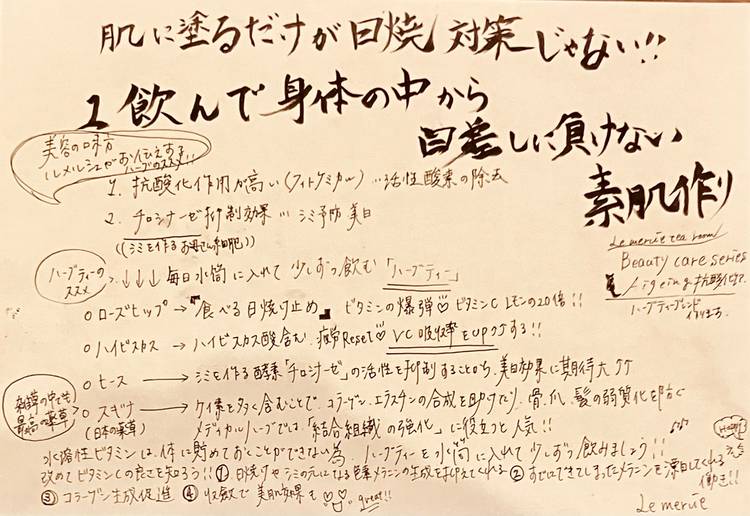 肌に塗るだけが日焼対策じゃない!!
飲んで身体の中から
日差しに負けない
素肌作り
美容の味方
ルメルシェがお伝えする
ハーブのススメ!!
1. 抗酸化作用が高い (フィトケミカル) …活性酸素の除去
2. チロシナーゼ抑制効果 … シミ予防 美白
((シミを作るお母さん細胞))
Le mercie tea room
Beauty care series
Aigeing 抗酸化ケア
ハーブティーブレンド
作ります。
ハーブティーの
ススメ
↓↓↓ 毎日水筒に入れて少しずつ飲む「ハーブティー」
○ ローズヒップ → "食べる日焼け止め" ビタミンの爆弾♡ ビタミンC レモンの20倍!!
○ ハイビスカス → ハイビスカス酸含む. 疲労Reset♡ VC吸収率をUP↑↑する!!
○ ヒース → シミを作る酵素「チロシナーゼ」の活性を抑制することから、美白効果に期待大↑↑
雑草の中でも
最高の薬草
○ スギナ → ケイ素を多く含むことで、コラーゲン、エラスチンの合成を助けたり、骨、爪、髪の弱質化を防ぐ
(日本の薬草) メディカルハーブでは、「結合組織の強化」に役立つと人気!!
水溶性ビタミンは、体に貯めておくことができない為、ハーブティーを水筒に入れて少しずつ飲みましょう!!
改めてビタミンCの良さを知ろう!! ① 日焼けやシミの元になる色素メラニンの生成をおさえてくれる ② すでにできてしまったメラニンを漂白してくれる
働き!!
③ コラーゲン生成促進 ④ 収斂で美肌効果も great!!
Le mercie